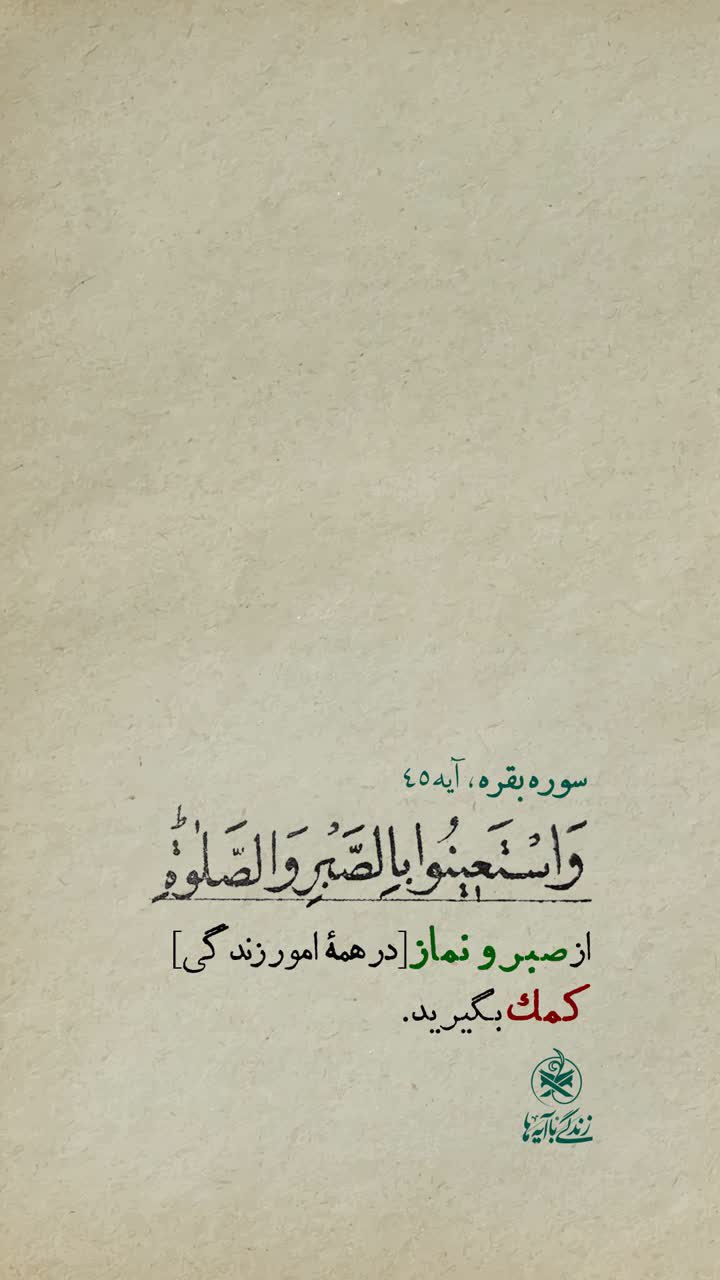 سوره بقره، آیه ٤٥
وَاسْتَعِينُوا بِالصَّبْرِ وَالصَّلَوٰةِ ۚ
از صبر و نماز [در همهٔ امور زندگی]
کمک بگیرید.
زندگی با آیه‌ها